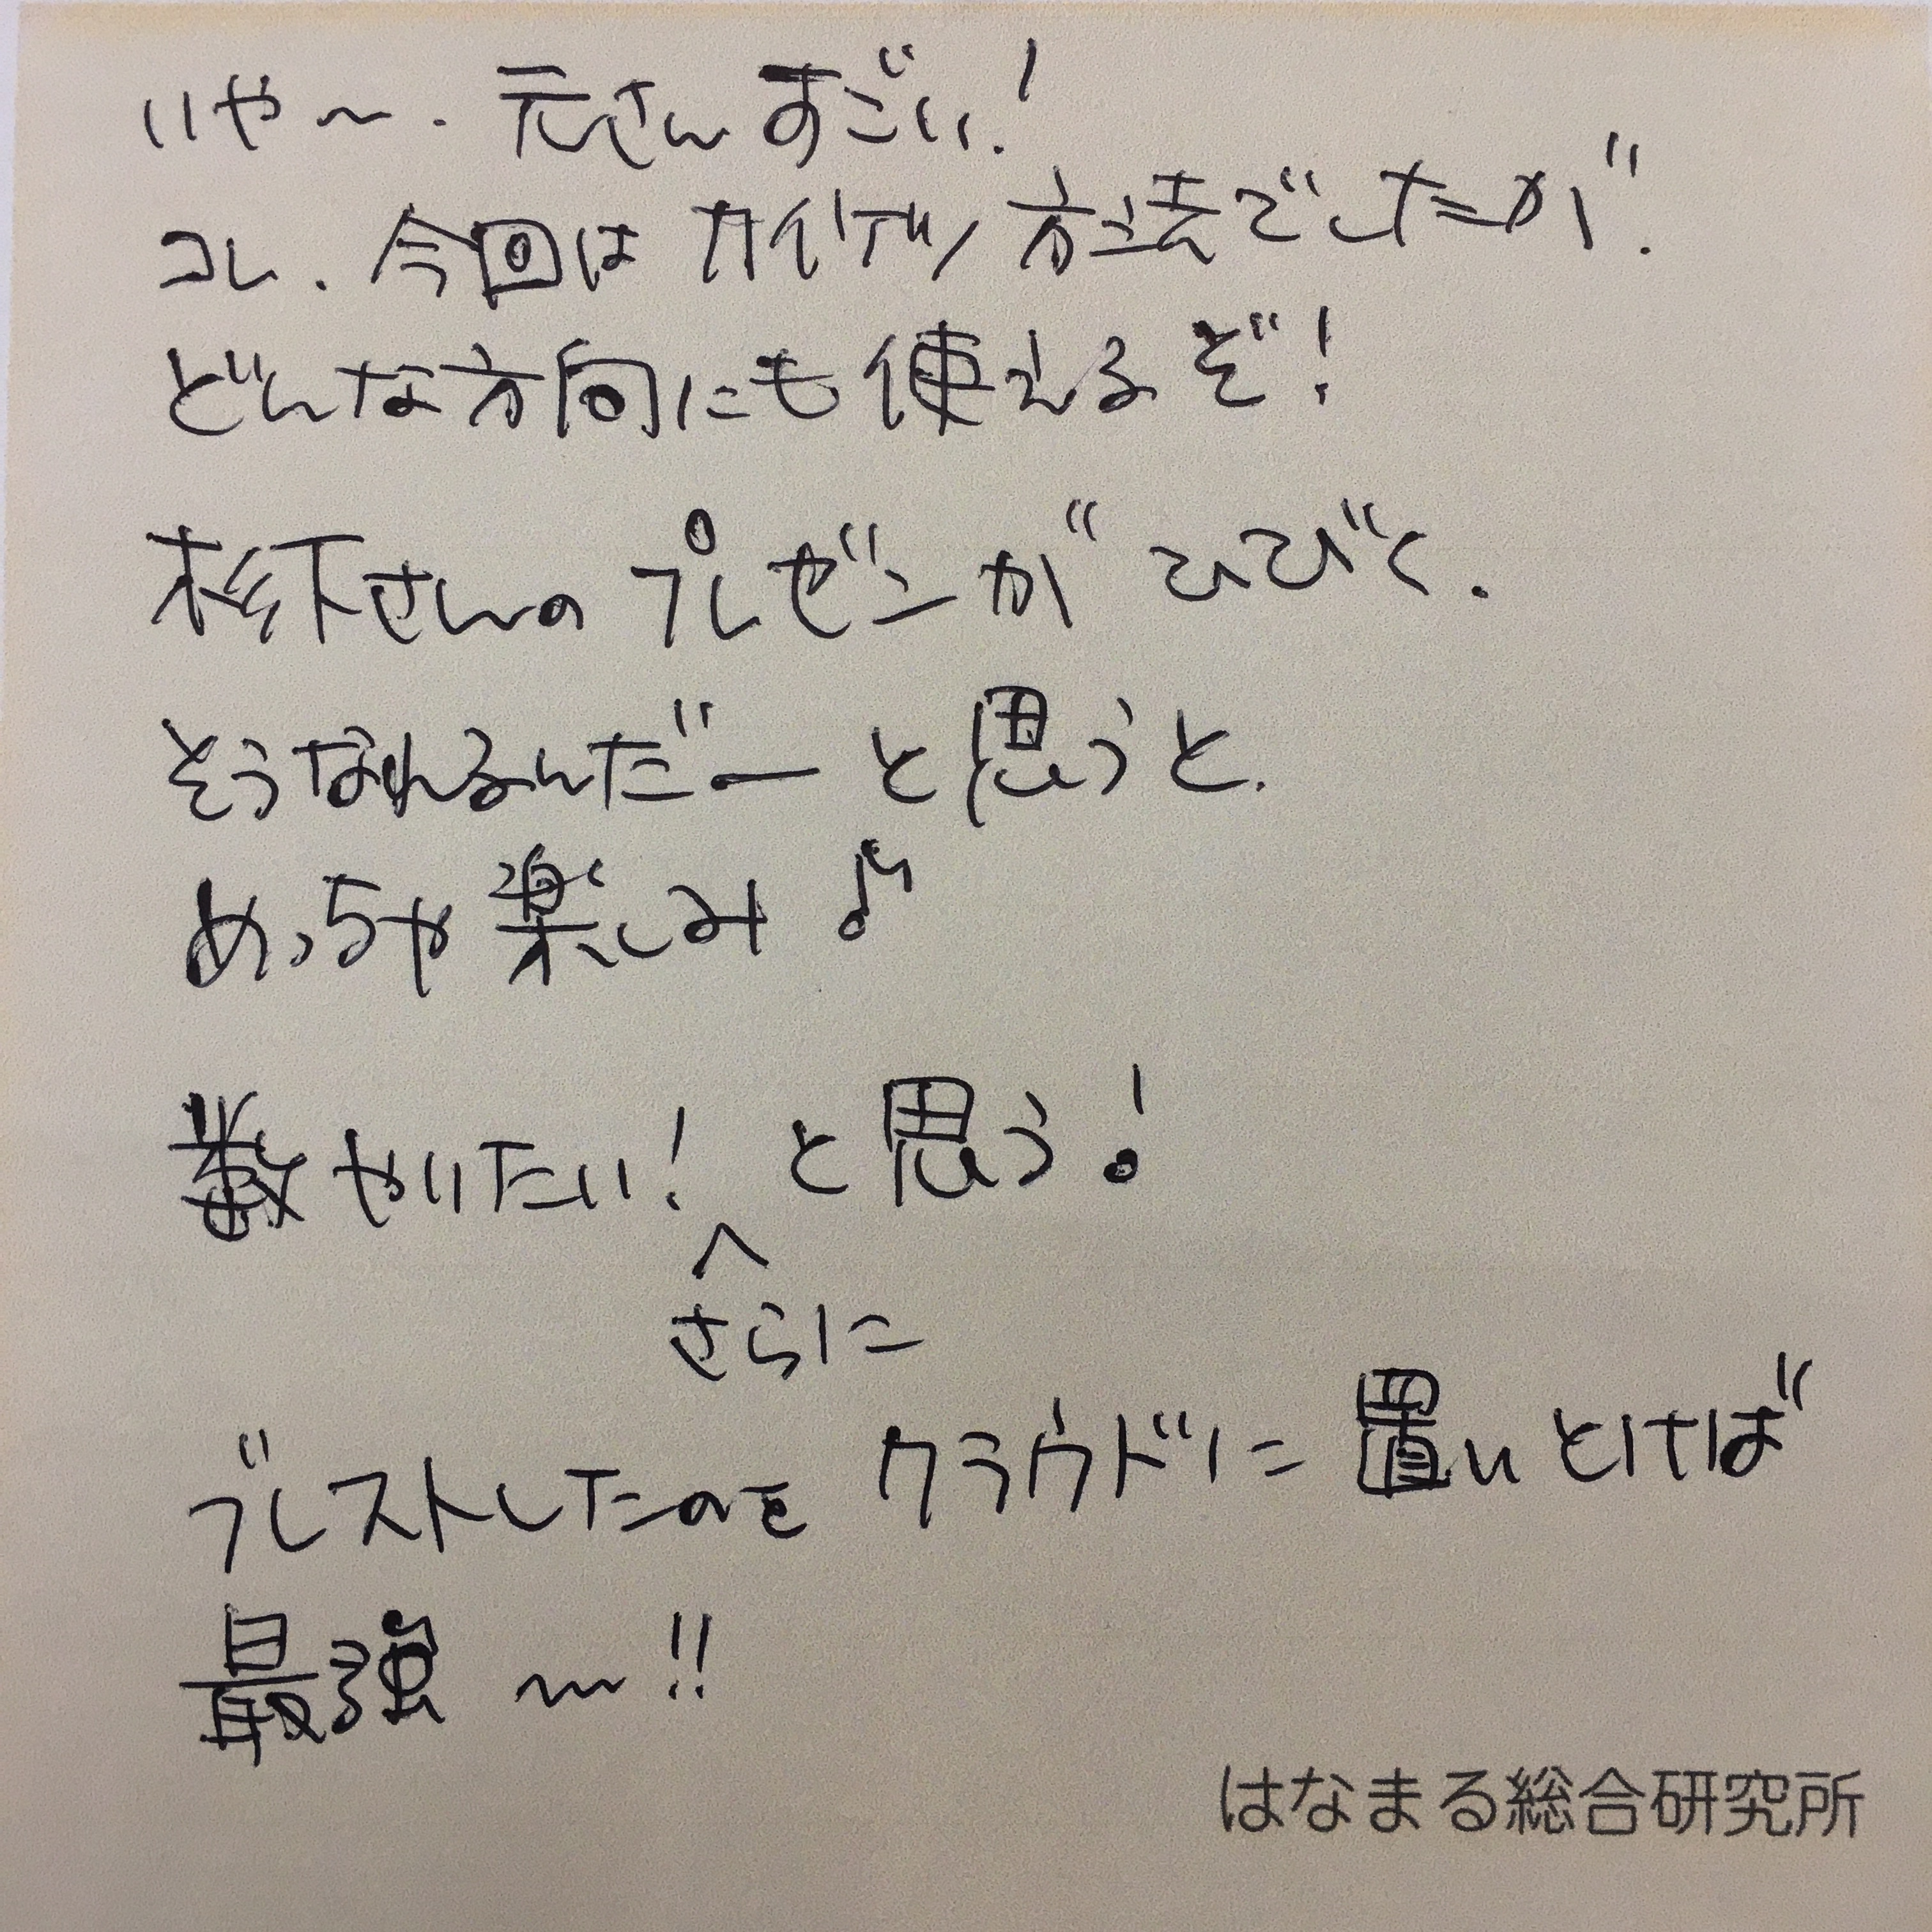 いや〜、元さんすごい！
コレ、今回はカイケツ方法でしたが、
どんな方向にも使えるぞ！
松下さんのプレゼンがひびく。
そうなれるんだーと思うと、
めっちゃ楽しみ♪
数やりたい！と思う！
^
さらに
ブレストしたのをクラウドに置いとけば
最強〜!!
はなまる総合研究所